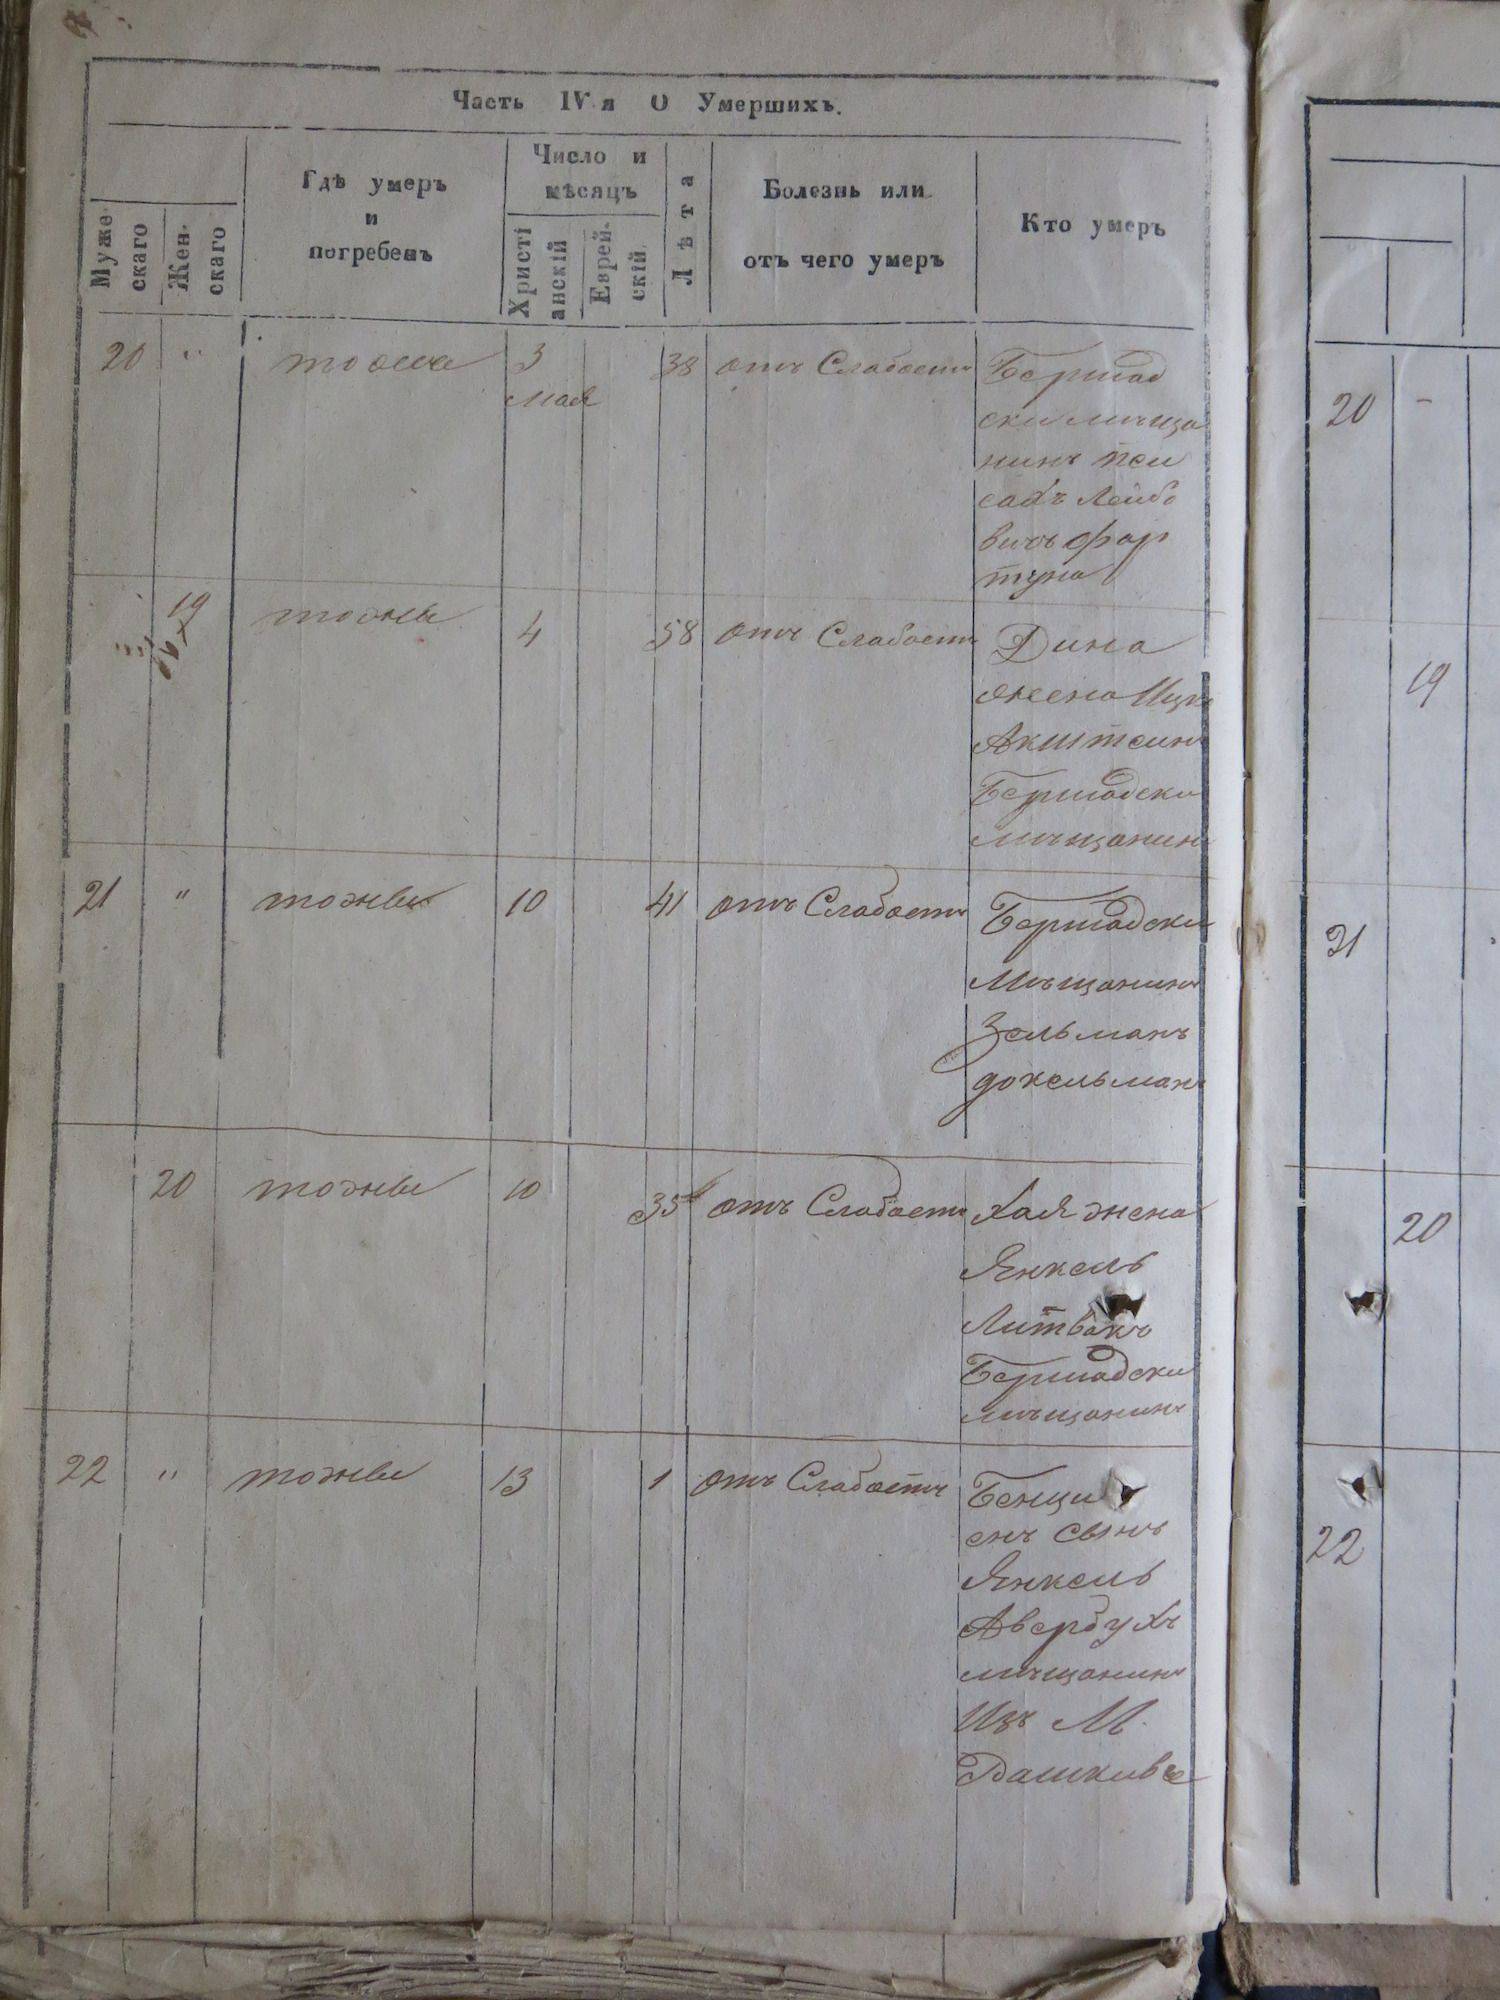 Часть IV я О Умершихъ.
Муже
скаго
Жен-
скаго
Гдѣ умеръ
и
погребенъ
Число и
мѣсяцъ
Христі
анскій
Еврей-
скій
Лѣта
Болезнь или
отъ чего умеръ
Кто умеръ
20 " тоже 3 38 отъ Слабости Бершад
мая
ски мѣща
нинъ
Лейбо
вичъ Фор
туна
20 -
19 тожъ 4 58 отъ Слабости Дина
жена Ицко
Акштеин
Бершадски
мѣщанин
19
21 " тожъ 10 41 отъ Слабости Бершадски
Мѣщанинъ
Зельманъ
21
20 тожъ 10 35 отъ Слабости Хая жена
Янкель
Литвакъ
Бершадски
мѣщанинъ
20
22 " тожъ 13 1 отъ Слабости Бенци
онъ сынъ
Янкель
Авербухъ
мѣщанинъ
Изъ М.
Дашкивъ
22